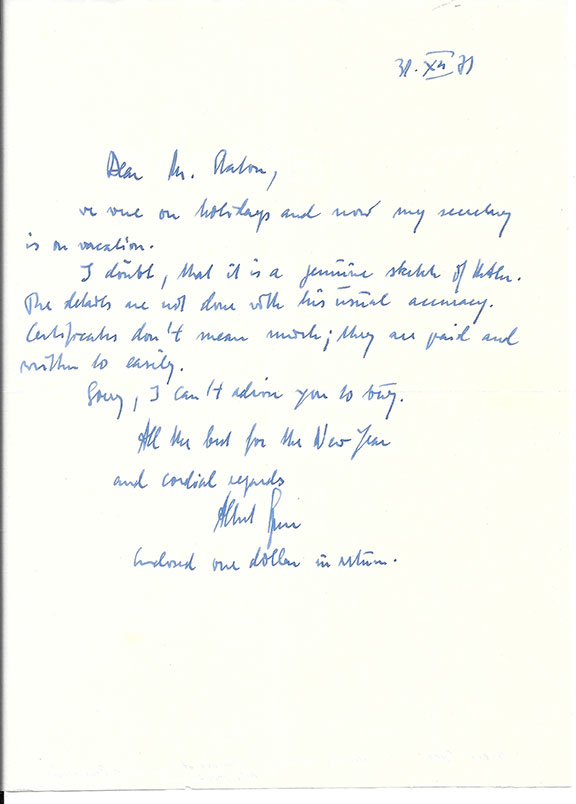 31. XII 71
Dear Mr.
we were on holidays and now my secretary
is on vacation.
I doubt, that it is a genuine sketch of Hitler.
The details are not done with his usual accuracy.
Certificates don't mean much; they are paid and
written to easily.
Sorry, I can't advise you to buy.
All the best for the New Year
and cordial regards
Albert Speer
Enclosed one dollar in return.